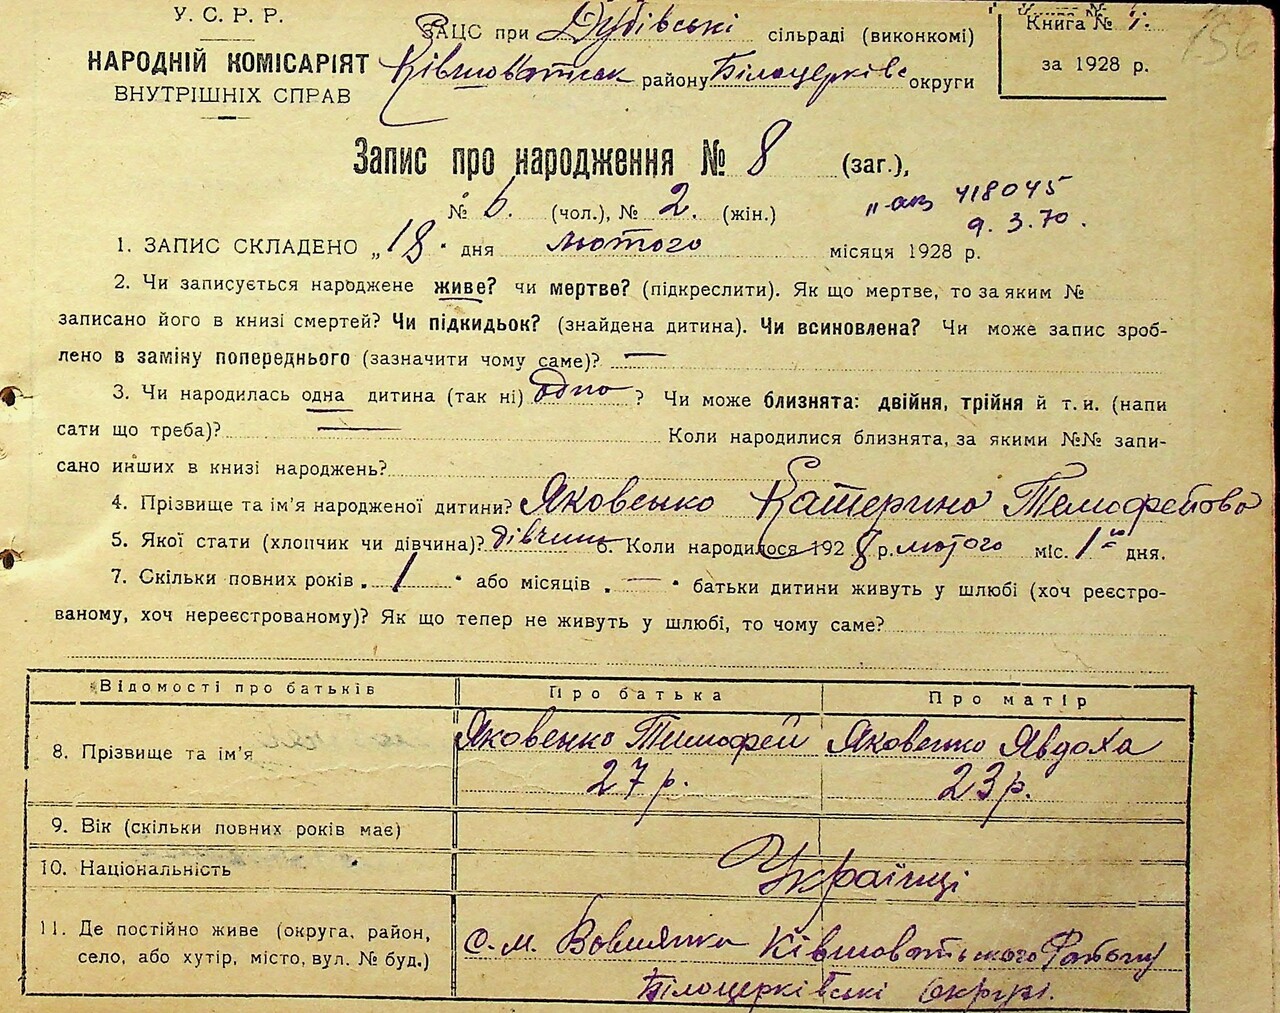 У. С. Р. Р.
НАРОДНІЙ КОМІСАРІЯТ
ВНУТРІШНІХ СПРАВ
ЗАЦС при Дубівські сільраді (виконкомі)
Ківшоватськ району Білоцерківс округи
Книга № 1.
за 1928 р.
156
Запис про народження № 8 (заг.),
№ 6. (чол.), № 2. (жін.)
418045
9.3.70.
1. ЗАПИС СКЛАДЕНО „18" дня лютого місяця 1928 р.
2. Чи записується народжене живе? чи мертве? (підкреслити). Як що мертве, то за яким №
записано його в книзі смертей? Чи підкидьок? (знайдена дитина). Чи всиновлена? Чи може запис зроб-
лено в заміну попереднього (зазначити чому саме)? —
3. Чи народилась одна дитина (так ні) одно ? Чи може близнята: двійня, трійня й т. и. (напи
сати що треба)? — Коли народилися близнята, за якими №№ запи-
сано инших в книзі народжень?
4. Прізвище та ім'я народженої дитини? Яковенко Катерина Темофейова
5. Якої стати (хлопчик чи дівчина)? дівчина 6. Коли народилося 1928 р. лютого міс. 1го дня.
7. Скільки повних років „1" або місяців „—" батьки дитини живуть у шлюбі (хоч реєстро-
ваному, хоч нереєстрованому)? Як що тепер не живуть у шлюбі, то чому саме?
Відомості про батьків Про батька Про матір
8. Прізвище та ім'я Яковенко Тимофей Яковенко Явдоха
27 р. 23 р.
9. Вік (скільки повних років має)
10. Національність Українці
11. Де постійно живе (округа, район,
село, або хутір, місто, вул. № буд.)
Ківшоватського Району
Білоцерківські Округі.